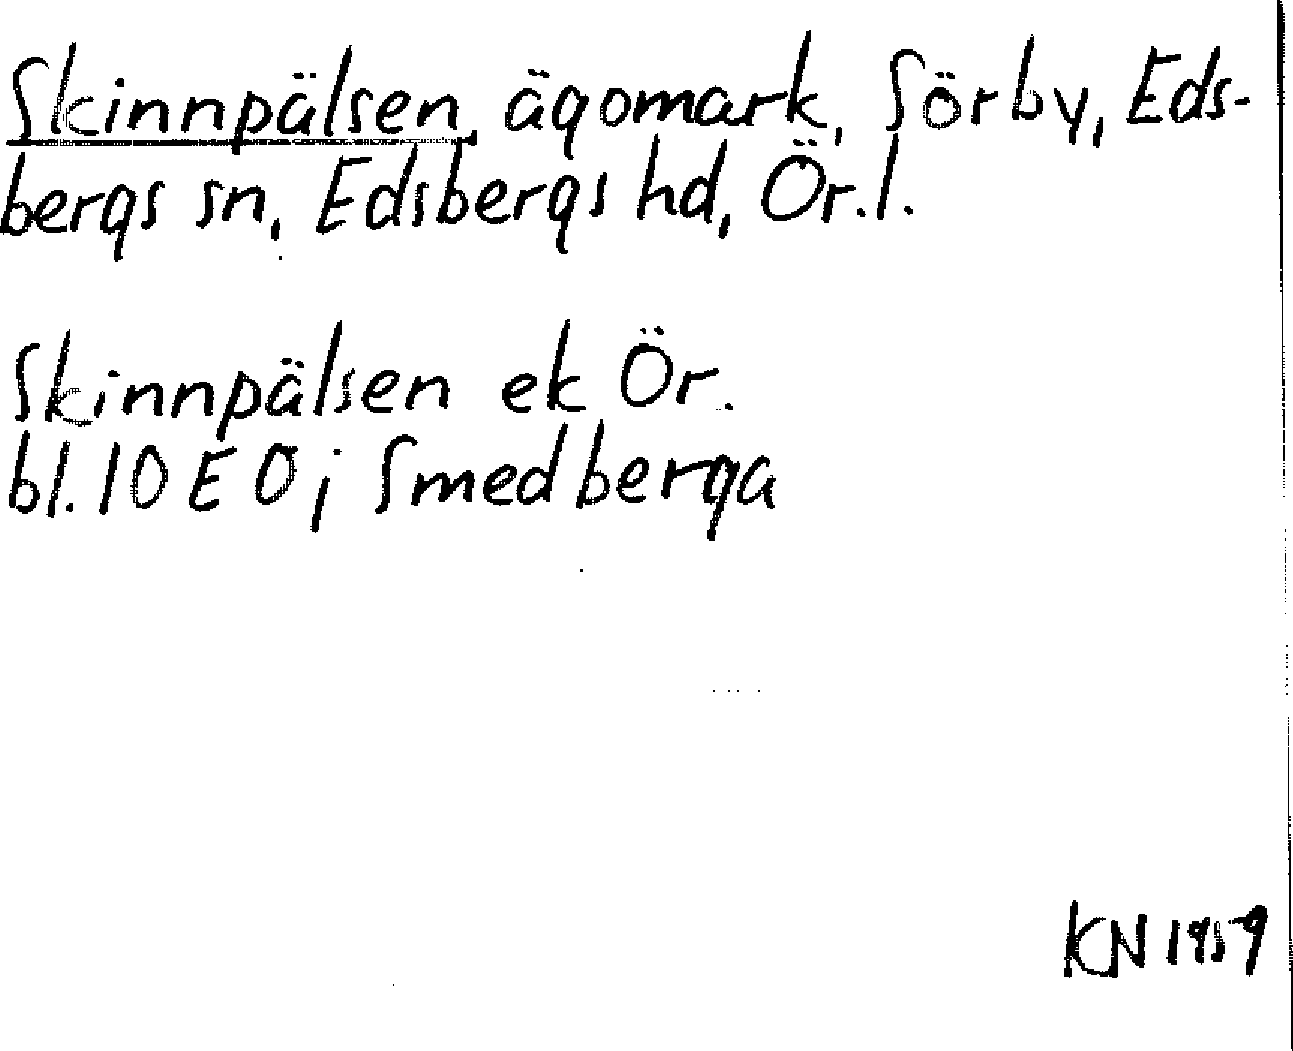 Skinnpälsen, ägomark, Sörby, Eds-
bergs sn, Edsbergs hd, Ör.l.
Skinnpälsen ek Ör.
bl. 10 E Ö; Smedberga
KN 1959